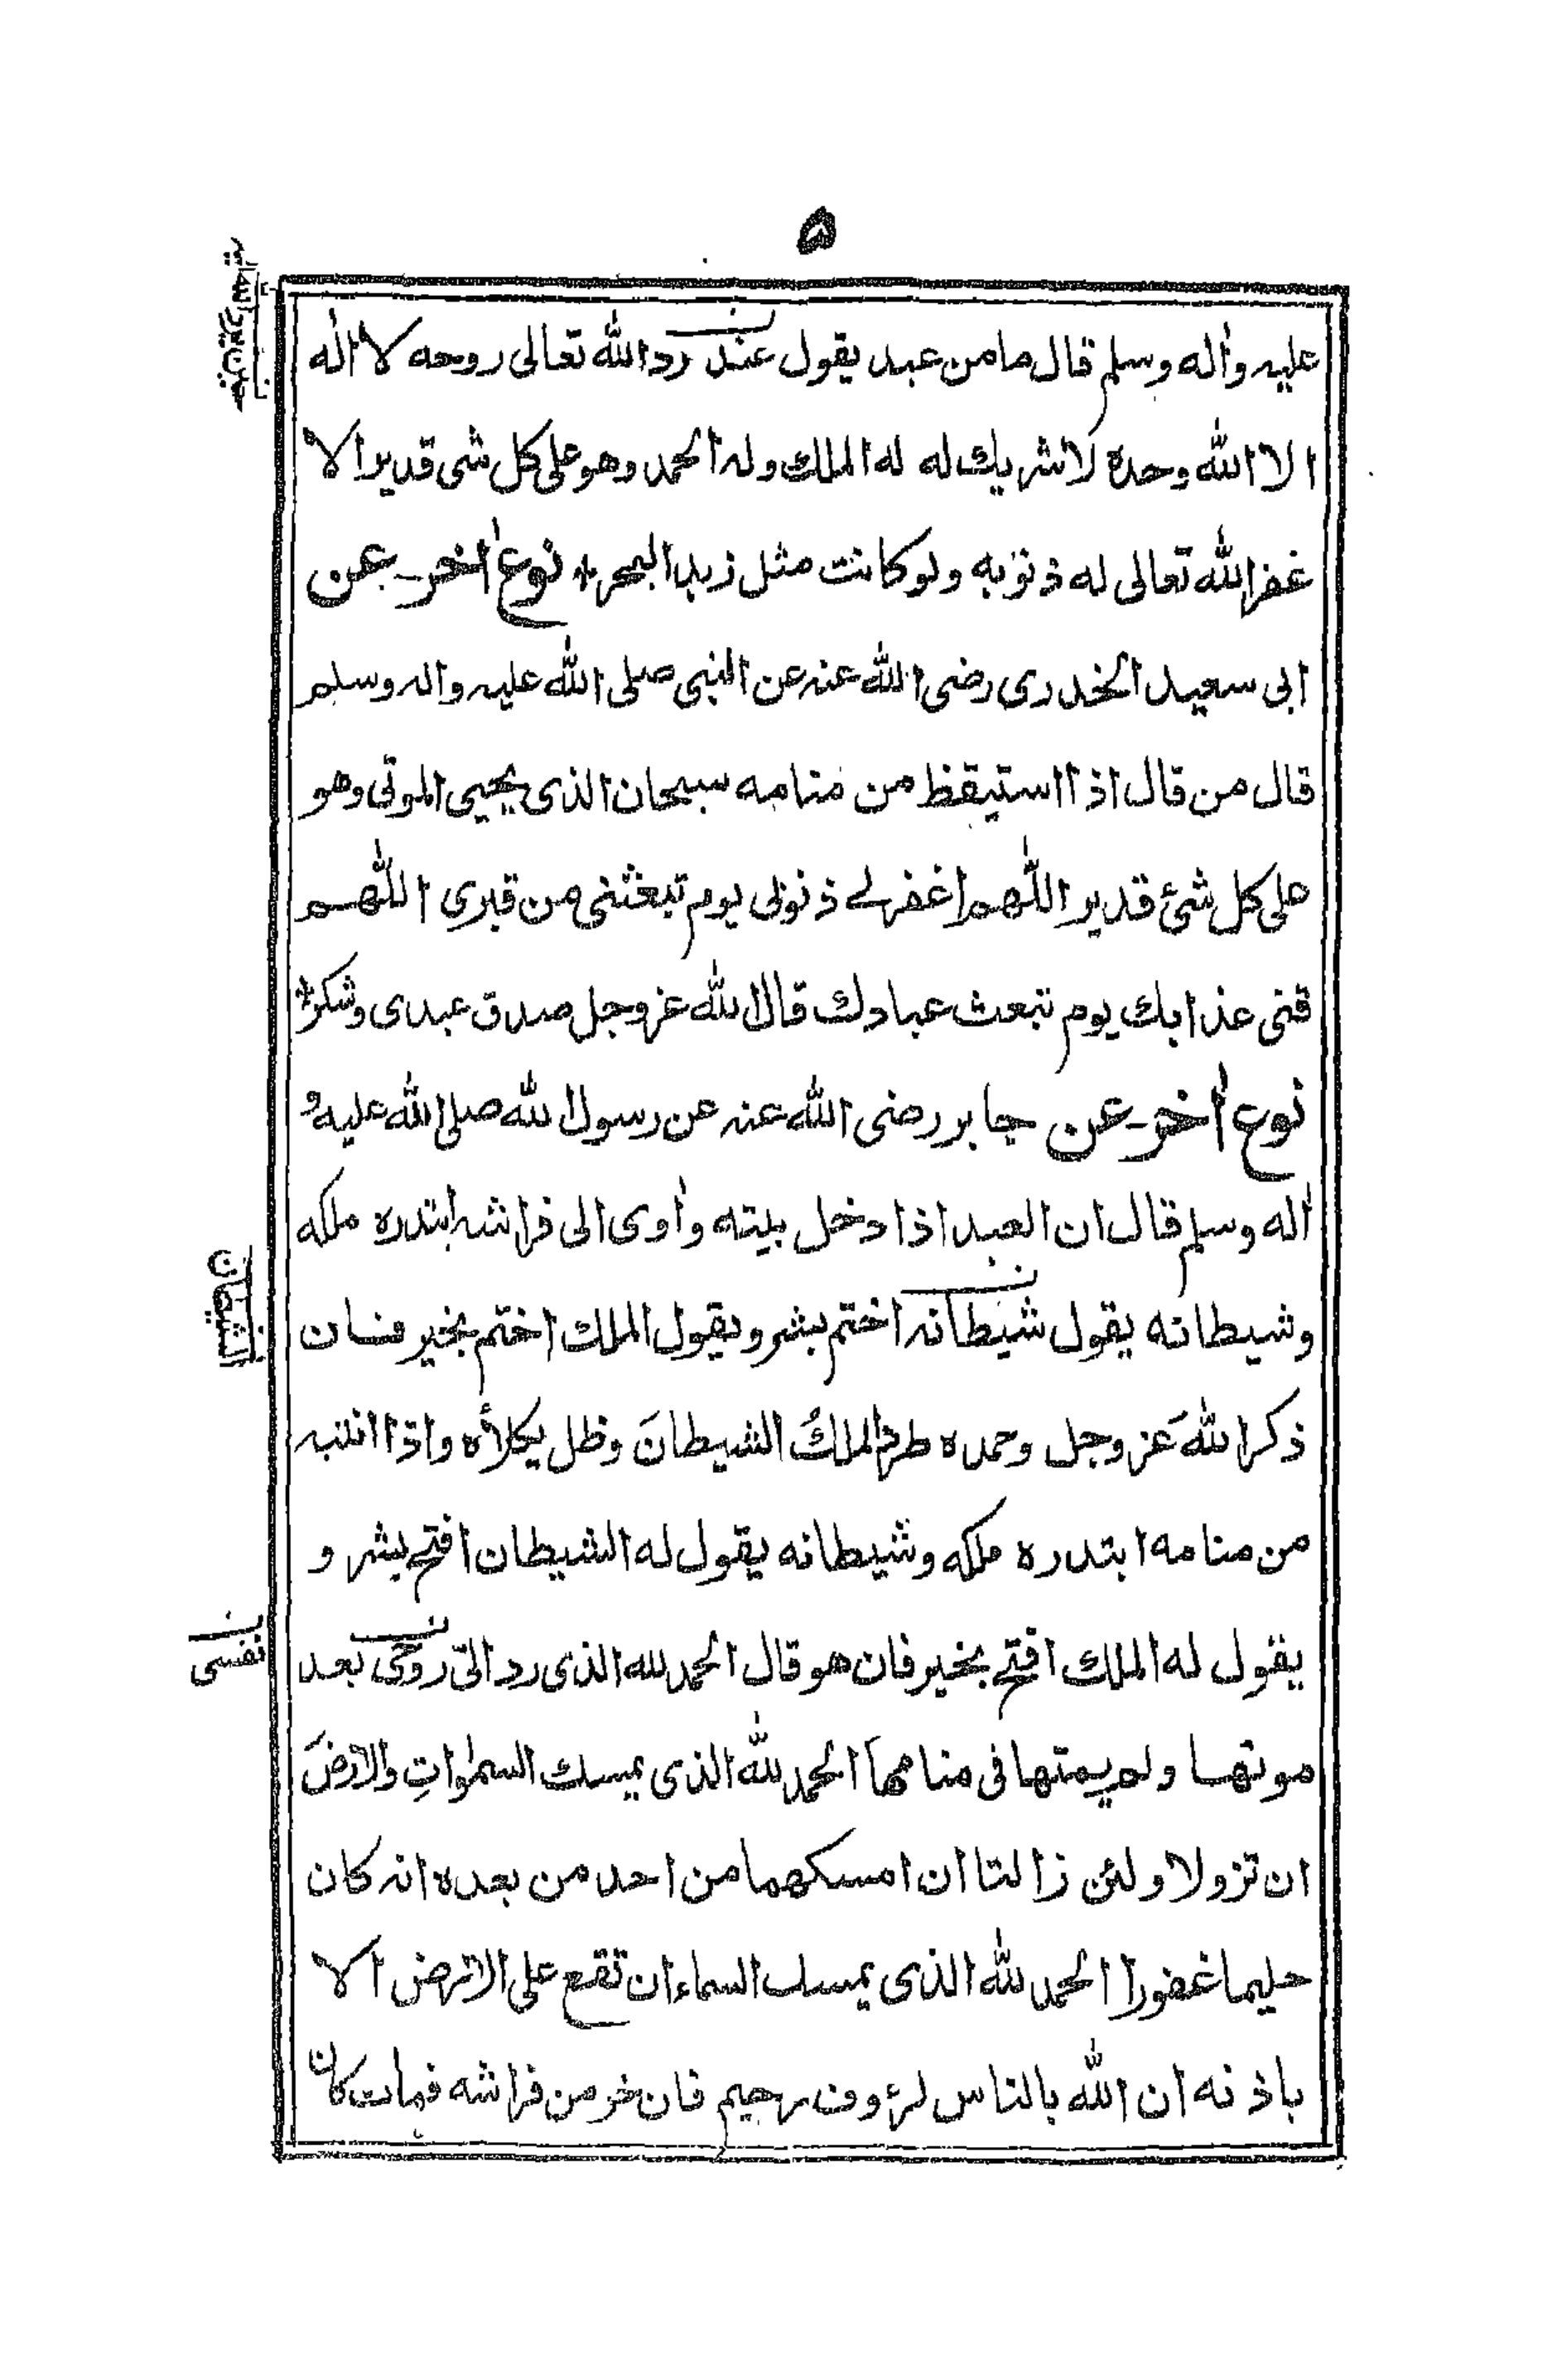 ۵
عليه واٰله وسلم قال ما من عبد يقول عند رد الله تعالى روحه لا اله
الا الله وحده لا شريك له له الملك وله الحمد وهو على كل شى قدير الا
غفر الله تعالى له ذنوبه ولو كانت مثل زبد البحر * نوع اٰخر - عن
ابى سعيد الخدرى رضى الله عنه عن النبى صلى الله عليه واله وسلم
قال من قال اذا استيقظ من منامه سبحان الذى يحيى الموتى وهو
على كل شئ قدير اللّٰهم اغفر لے ذنوبى يوم تبعثنى من قبرى اللّٰهم
قنى عذابك يوم تبعث عبادك قال الله عز وجل صدق عبدى وشكر *
نوع اٰخر - عن جابر رضى الله عنه عن رسول الله صلى الله عليه و
اٰله وسلم قال ان العبد اذا دخل بيته واٰوى الى فراشه ابتدره ملكه
وشيطانه يقول شيطانه اختم بشر ويقول الملك اختم بخير فان
ذكر اللهَ عز وجل وحمده طرد الملكُ الشيطانَ وظل يكلأه واذا انتبه
من منامه ابتدره ملكه وشيطانه يقول له الشيطان افتح بشر و
يقول له الملك افتح بخير فان هو قال الحمد لله الذى رد الىّ روحى بعد
موتها ولم يمتها فى منامها الحمد لله الذى يمسك السمٰواتِ والارضَ
ان تزولا ولئن زالتا ان امسكهما من احد من بعده انه كان
حليما غفورا الحمد لله الذى يمسك السماء ان تقع على الارض الا
باذنه ان الله بالناس لرءوف رحيم فان خر من فراشه فمات كان
حين يرد الله اليه
الشيطان
نفسى